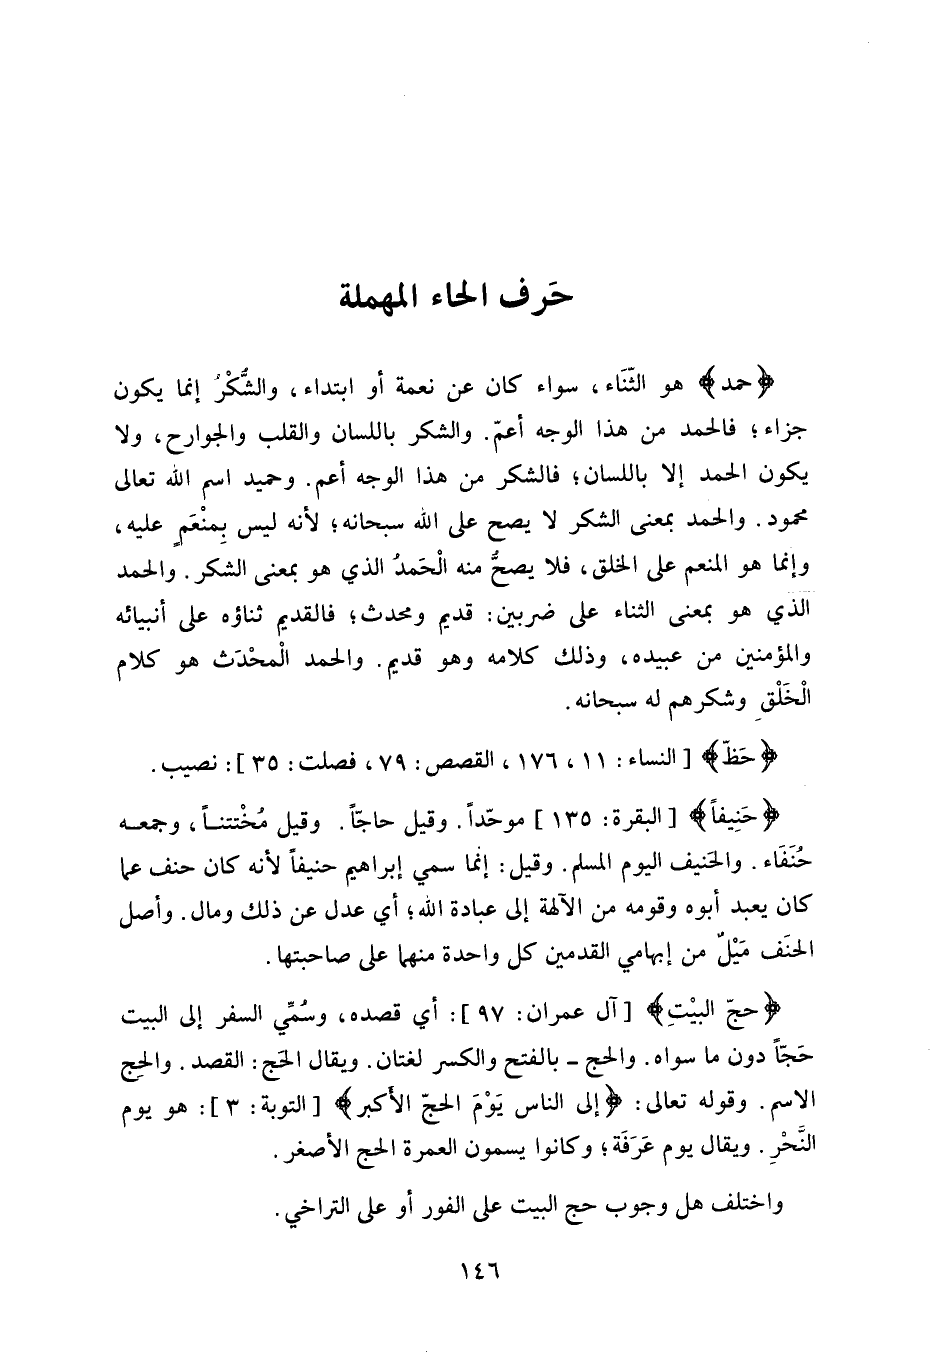 حَرف الحاء المهملة
﴿حمد﴾ هو الثّنَاء، سواء كان عن نعمة أو ابتداء، والشُّكْرُ إنما يكون
جزاء؛ فالحمد من هذا الوجه أعمّ. والشكر باللسان والقلب والجوارح، ولا
يكون الحمد إلا باللسان؛ فالشكر من هذا الوجه أعم. وحميد اسم الله تعالى
محمود. والحمد بمعنى الشكر لا يصح على الله سبحانه؛ لأنه ليس بِمنْعَمٍ عليه،
وإنما هو المنعم على الخلق، فلا يصحُّ منه الْحَمدُ الذي هو بمعنى الشكر. والحمد
الذي هو بمعنى الثناء على ضربين: قديم ومحدث؛ فالقديم ثناؤه على أنبيائه
والمؤمنين من عبيده، وذلك كلامه وهو قديم. والحمد الْمحْدَث هو كلام
الْخَلْقِ وشكرهم له سبحانه.
﴿حَظّ﴾ [النساء: ١١، ١٧٦، القصص: ٧٩، فصلت: ٣٥]: نصيب.
﴿حَنِيفاً﴾ [البقرة: ١٣٥] موحّداً. وقيل حاجّاً. وقيل مُخْتتنـاً، وجمعـه
حُنَفَاء. والحَنيف اليوم المسلم. وقيل: إنما سمي إبراهيم حنيفاً لأنه كان حنف عما
كان يعبد أبوه وقومه من الآلهة إلى عبادة الله؛ أي عدل عن ذلك ومال. وأصل
الحنَف مَيْلٌ من إبهامي القدمين كل واحدة منهما على صاحبتها.
﴿حجّ البيْتِ﴾ [آل عمران: ٩٧]: أي قصده، وسُمِّي السفر إلى البيت
حَجّاً دون ما سواه. والحج - بالفتح والكسر لغتان. ويقال الحَج: القصد. والحِج
الاسم. وقوله تعالى: ﴿إلى الناس يَوْمَ الحجّ الأَكبر﴾ [التوبة: ٣]: هو يوم
النَّحْرِ. ويقال يوم عَرَفَة؛ وكانوا يسمون العمرة الحج الأصغر.
واختلف هل وجوب حج البيت على الفور أو على التراخي.
١٤٦